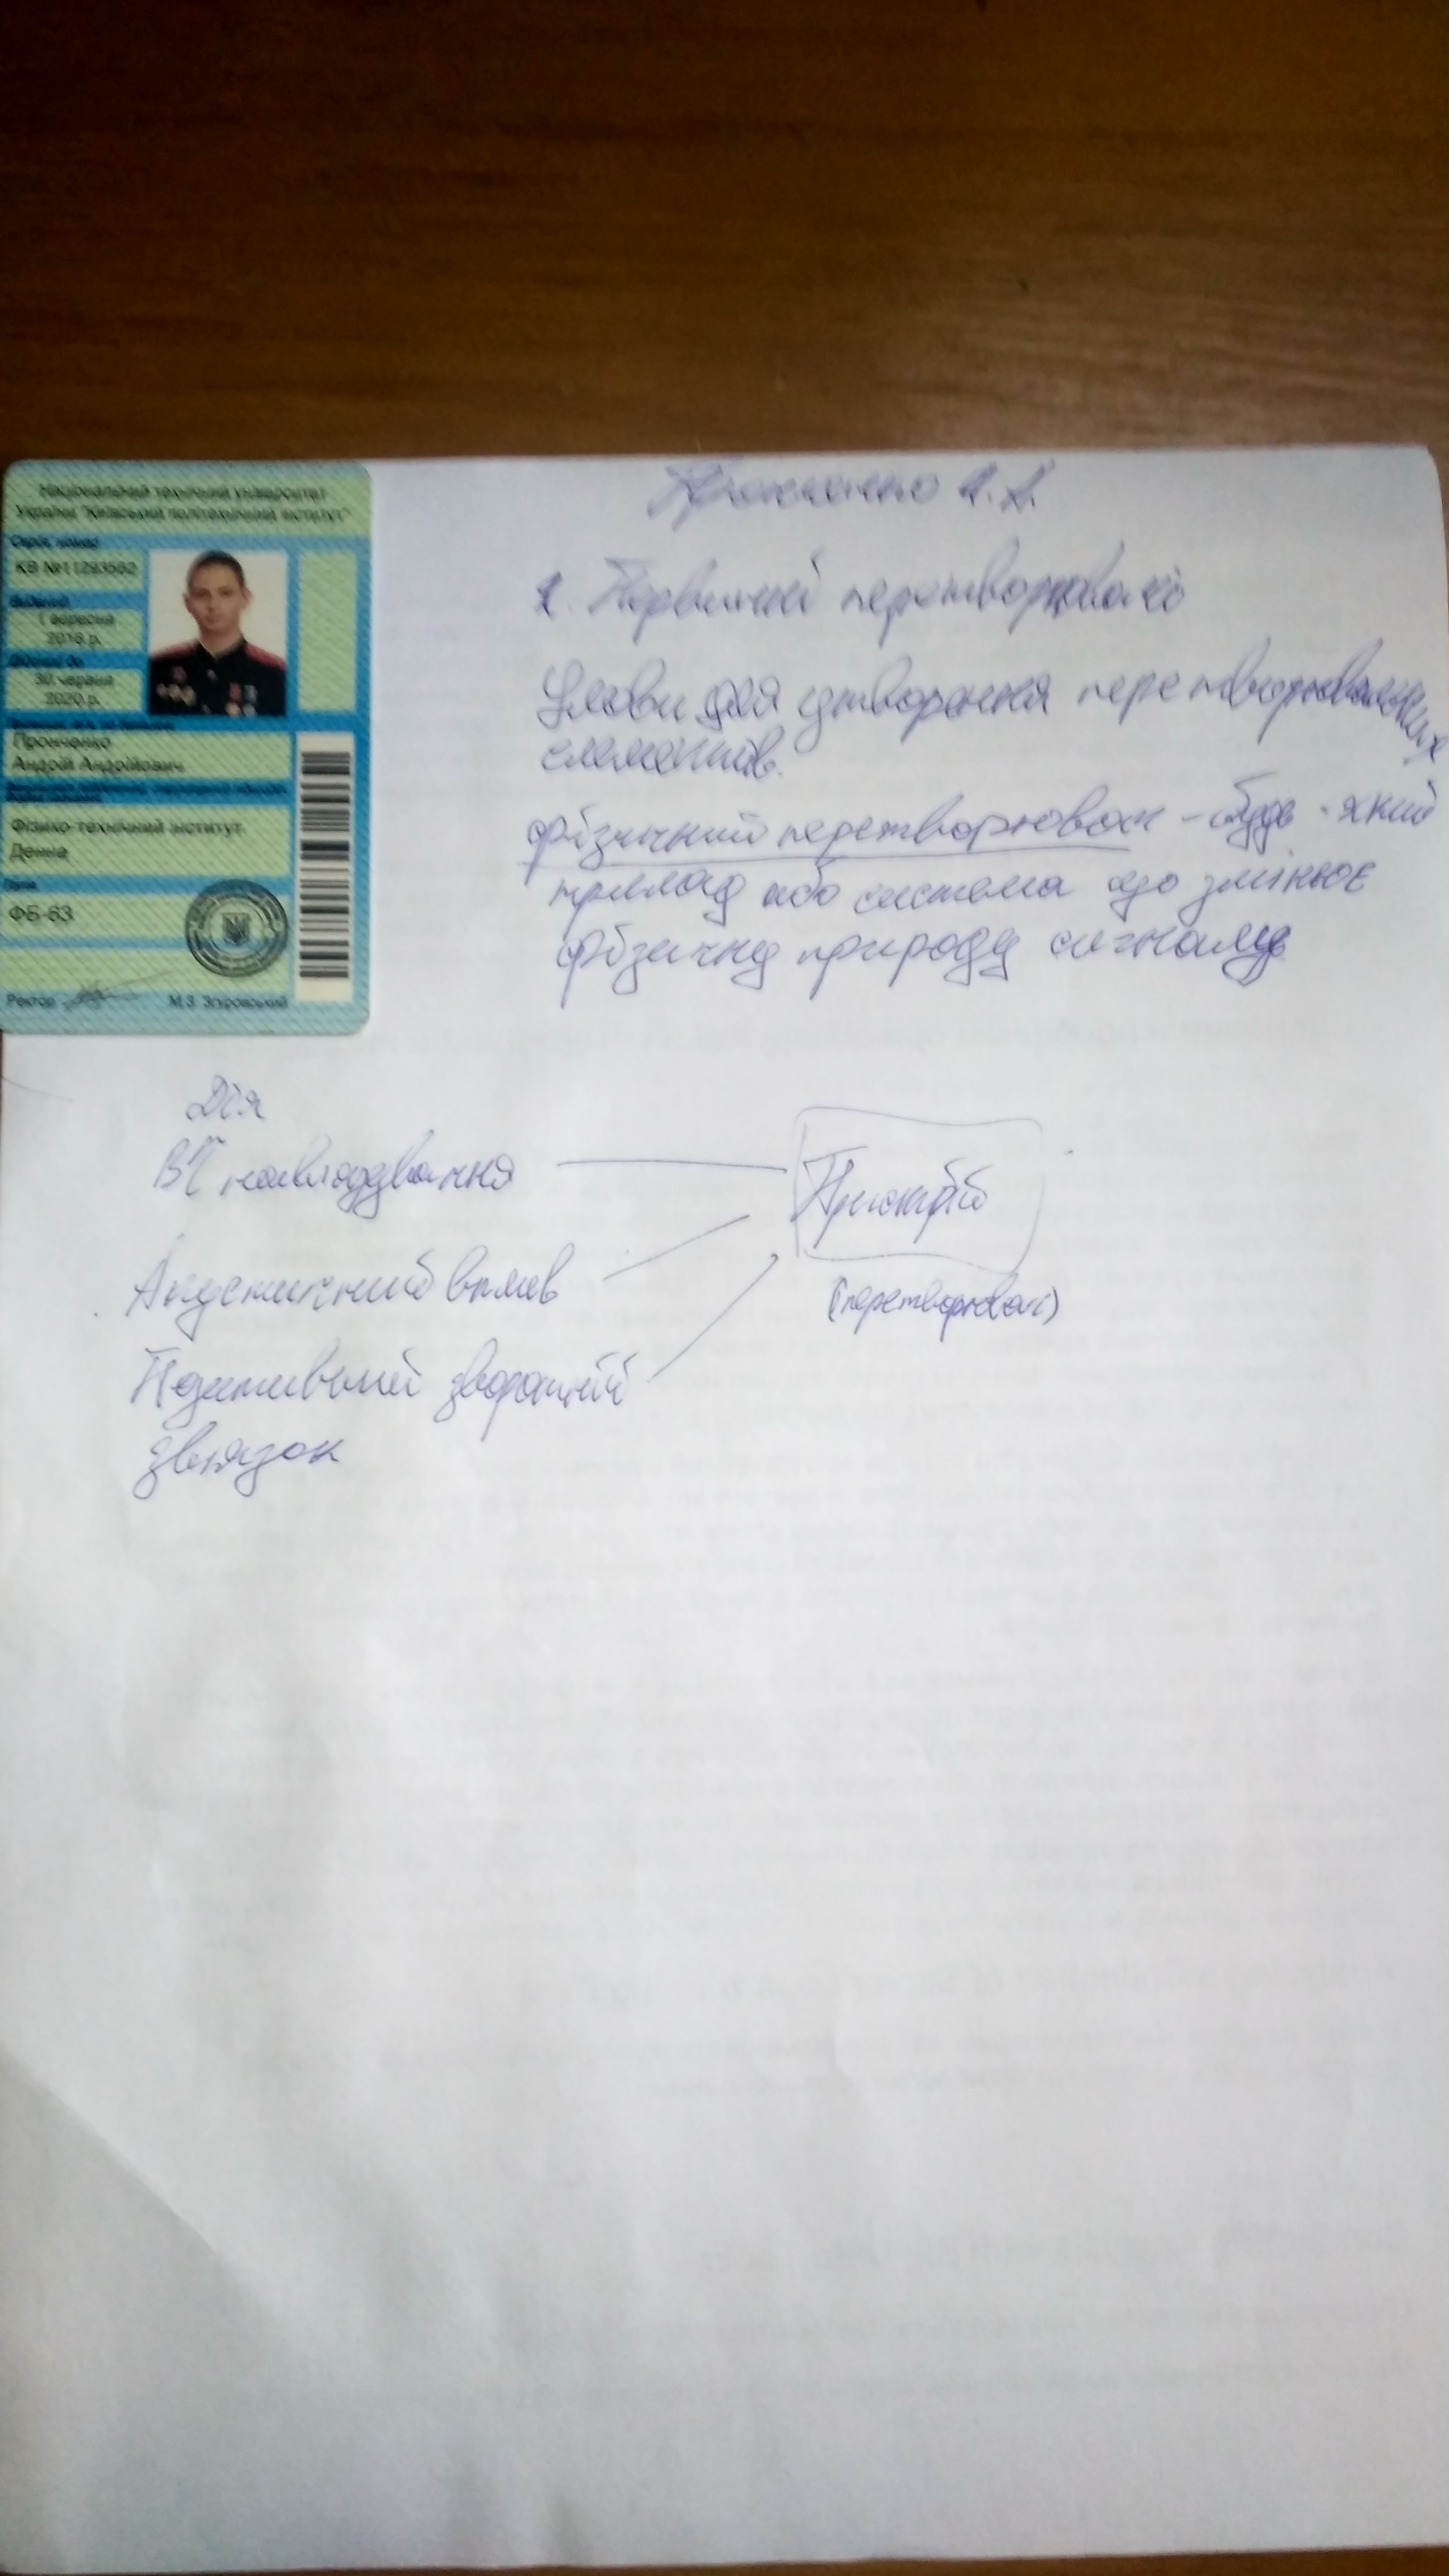 Національний технічний університет
України "Київський політехнічний інститут"
Серія, номер
КВ №11293562
Виданий
1 вересня
2016 р.
Дійсний до
30 червня
2020 р.
Пронченко
Андрій Андрійович
Фізико-технічний інститут
Денна
Група
ФБ-63
Ректор
М.З. Згуровський
Пронченко А.А.
1. Первинні перетворювачі
Умови для утворення перетворювальних
елементів.
Фізичний перетворювач - будь-який
прилад або система що змінює
фізичну природу сигналу
Дія
ВЧ нав'язування
Акустичний вплив
Позитивний зворотній
зв'язок
Пристрій
(перетворювач)